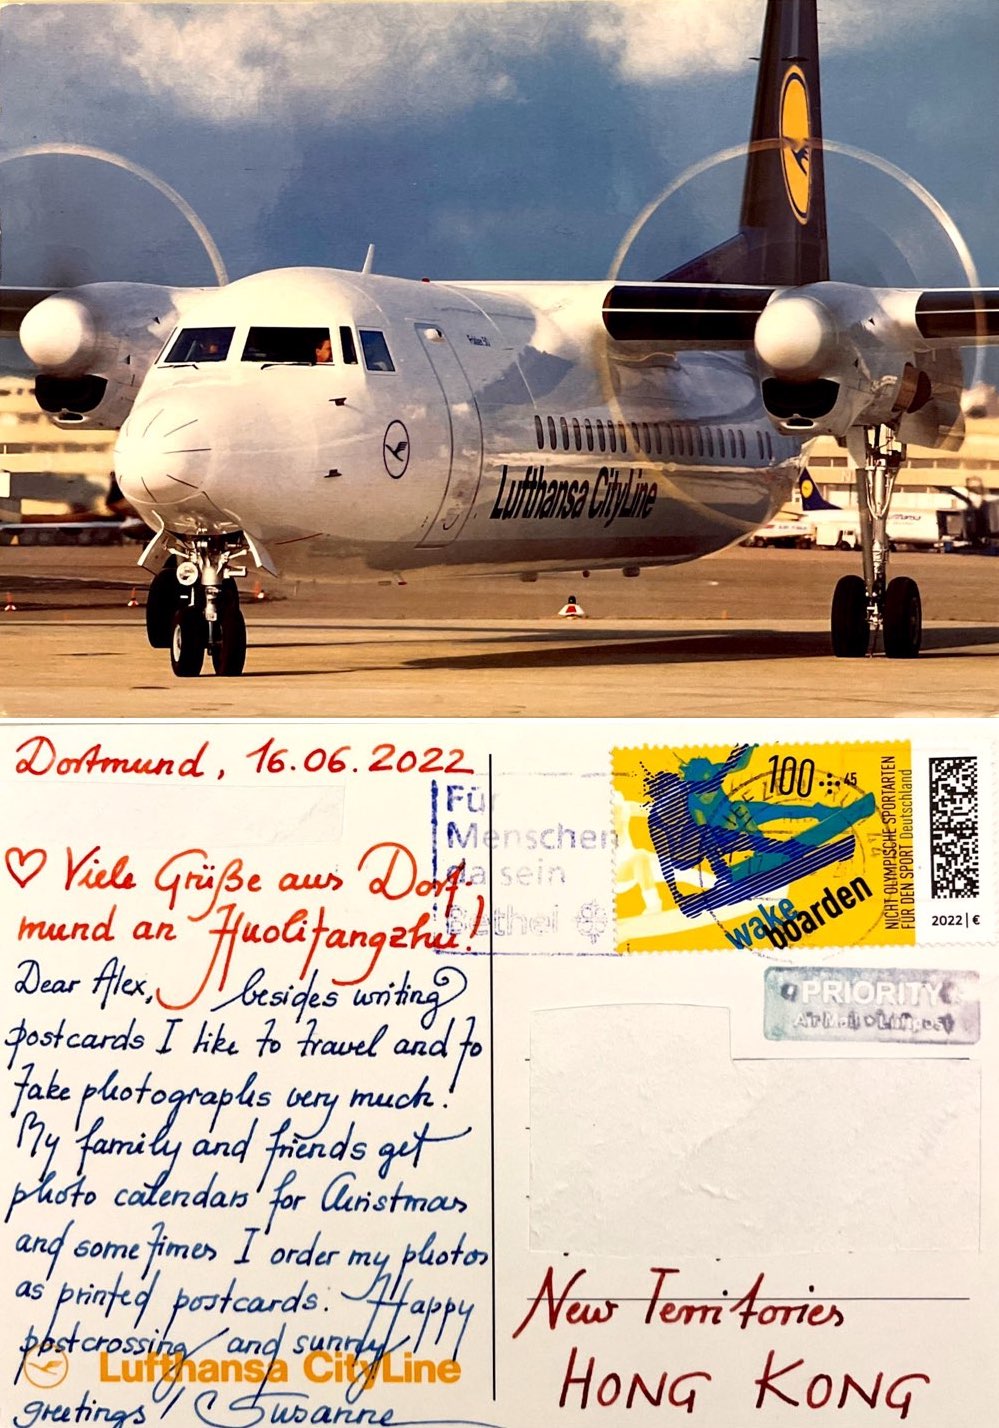 Lufthansa CityLine
Dortmund, 16.06.2022
♡ Viele Grüße aus Dort-
mund an Huolifangzhu!
Dear Alex, besides writing
postcards I like to travel and to
take photographs very much.
My family and friends get
photo calendars for Christmas
and sometimes I order my photos
as printed postcards. Happy
postcrossing and sunny
Lufthansa CityLine
greetings! Susanne
Für
Menschen
da sein
Bethel
100 + 45
wake
boarden
NICHT-OLYMPISCHE SPORTARTEN
FÜR DEN SPORT Deutschland
2022 | €
PRIORITY
New Territories
HONG KONG